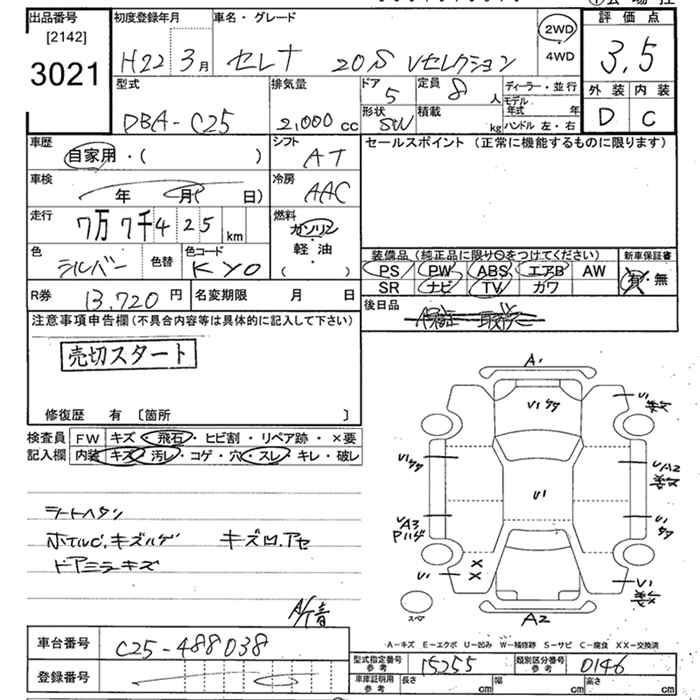 出品番号 初度登録年月 車名・グレード 評価点
[2142] H22 3月 セレナ 20S Vセレクション 2WD 3.5
3021 4WD
型式 排気量 ドア 5 定員 8人 ディーラー・並行 外装 内装
モデル年式 年
DBA-C25 2,000cc 形状 SW 積載 kg ハンドル 左・右 D C
車歴 シフト セールスポイント (正常に機能するものに限ります)
自家用・( ) AT
車検 冷房
年 月( 日) AAC
走行 燃料
7万7千425km ガソリン
色 色替 色コード 軽油
シルバー KY0 ( )
装備品 (純正品に限り○をつけてください) 新車保証書
PS PW ABS エアB AW 有・無
SR ナビ TV カワ
R券 13,720円 名変期限 月 日
後日品
注意事項申告欄 (不具合内容等は具体的に記入して下さい)
売切スタート
修復歴 有 〔箇所 〕
検査員 FW キズ・飛石・ヒビ割・リペア跡・×要
記入欄 内装 キズ・汚レ・コゲ・穴・スレ・キレ・破レ
シートヘタリ
キズ凹.アセ
ドアミラーキズ
A1
U1
U1
U1
UA2
UA3
U1
U1
U1
A2
スペア
A-キズ E-エクボ U-凹み W-補修跡 S-サビ C-腐食 XX-交換済
車台番号 C25-488038
登録番号
型式指定番号 参考 15255 類別区分番号 参考 0146
車庫証明用 参考 長さ cm 幅 cm 高さ cm